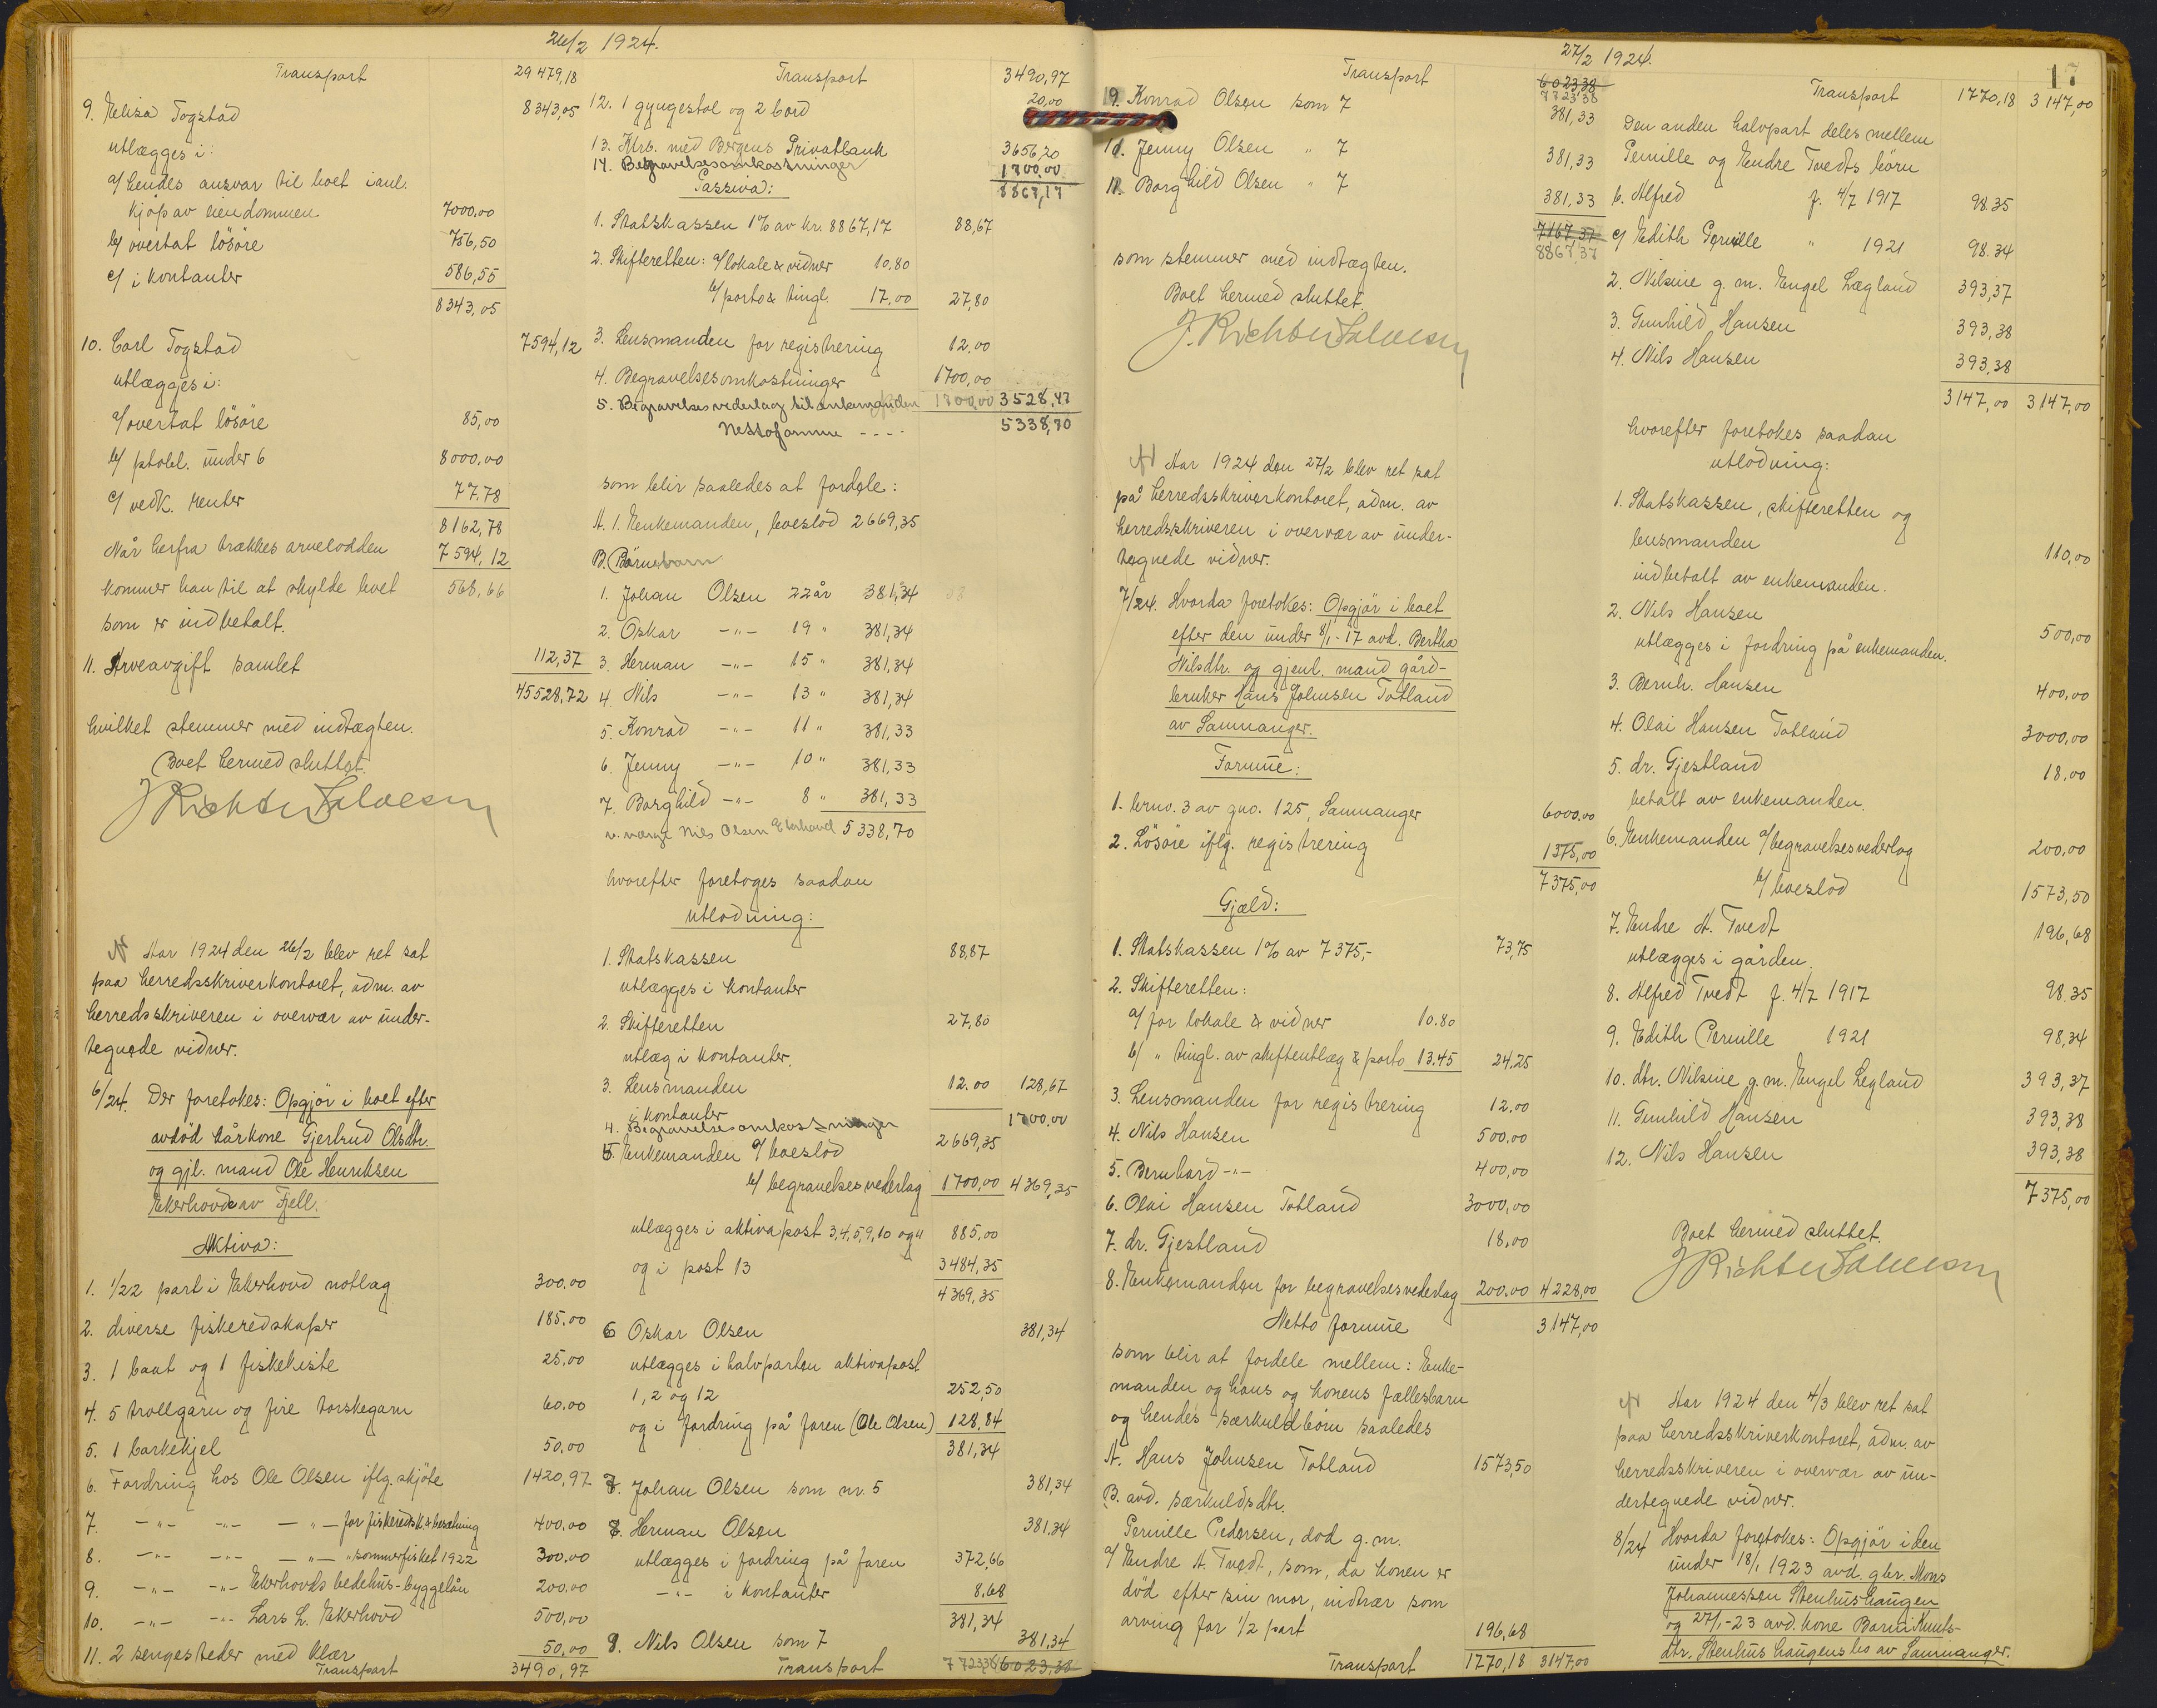 26/2 1924.
Transport 29479,18
9. Elisa Togstad 8343,05
utlægges i:
a/ hendes ansvar til boet i anl.
kjöp av eiendommen 7000,00
b/ overtat lösöre 756,50
c/ i kontanter 586,55
8343,05
10. Carl Togstad 7594,12
utlægges i:
a/ overtat lösöre 85,00
b/ ptobl. under 6 8000,00
c/ vedk. renter 77,78
8162,78
Når herfra trækkes arvelodden 7594,12
kommer han til at skylde boet 568,66
som er indbetalt.
11. Arveavgift samlet 112,37
45528,72
hvilket stemmer med indtægten.
Boet hermed sluttet.
J Richter Salvesen
Aar 1924 den 26/2 blev ret sat
paa herredsskriverkontoret, adm. av
herredsskriveren i overvær av under-
tegnede vidner.
6/24. Der foretokes: Opgjör i boet efter
avdöd kårkone Gjertrud Olsdtr.
og gjl. mand Ole Henriksen
Ekerhovd av Fjell.
Aktiva:
1. 1/22 part i Ekerhovd notlag 300,00
2. diverse fiskeredskaper 185,00
3. 1 baat og 1 fiskekiste 25,00
4. 5 trollgarn og fire torskegarn 60,00
5. 1 barkekjel 50,00
6. Fordring hos Ole Olsen iflg. skjöte 1420,97
7. -"- -"- -"- for fiskeredsk. & besætning 400,00
8. -"- -"- -"- " sommerfisket 1922 300,00
9. -"- -"- Ekerhovds bedehus-byggelån 200,00
10. -"- -"- Lars L. Ekerhovd 500,00
11. 2 sengesteder med klær 50,00
Transport 3490,97
Transport 3490,97
12. 1 gyngestol og 2 bord 20,00
13. Ktrb. med Bergens Privatbank 3656,20
14. Begravelsesomkostninger 1700,00
Passiva: 8867,17
1. Statskassen 1% av kr. 8867,17 88,67
2. Skifteretten: a/ lokale & vidner 10,80
b/ porto & tingl. 17,00 27,80
3. Lensmanden for registrering 12,00
4. Begravelsesomkostninger 1700,00
5. Begravelsesvederlag til enkemanden 1700,00 3528,47
Nettoformue ---- 5338,70
som blir saaledes at fordele:
A. 1. Enkemanden, boeslod 2669,35
B. Börnebarn
1. Johan Olsen 22 år 381,34
2. Oskar -"- 19 " 381,34
3. Herman -"- 15 " 381,34
4. Nils -"- 13 " 381,34
5. Konrad -"- 11 " 381,33
6. Jenny -"- 10 " 381,33
7. Borghild -"- 8 " 381,33
v. værge Nils Olsen Ekerhovd 5338,70
hvorefter foretoges saadan
utlodning:
1. Statskassen 88,87
utlægges i kontanter
2. Skifteretten 27,80
utlæg i kontanter.
3. Lensmanden 12.00 128,67
i kontanter
4. Begravelsesomkostninger 1700,00
5. Enkemanden a/ boeslod 2669,35
b/ begravelsesvederlag 1700,00 4369,35
utlægges i aktiva post 3,4,5,9,10 og 11 885,00
og i post 13 3484,35
4369,35
6 Oskar Olsen 381,34
utlægges i halvparten aktivapost
1, 2 og 12 252,50
og i fordring på faren (Ole Olsen) 128,84
381,34
7. Johan Olsen som nr. 5 381,34
8. Herman Olsen 381,34
utlægges i fordring på faren 372,66
-"- i kontanter 8,68
381,34
9. Nils Olsen som 7 381,34
Transport 7723,38 6023,38
27/2 1924.
17
Transport 6023,38
7723,38
9. Konrad Olsen som 7 381,33
10. Jenny Olsen " 7 381,33
11. Borghild Olsen " 7 381,33
7167,37
8867,37
som stemmer med indtægten.
Boet hermed sluttet.
J. Richter Salvesen
Aar 1924 den 27/2 blev ret sat
på herredsskriverkontoret, adm. av
herredsskriveren i overvær av under-
tegnede vidner.
7/24. Hvorda foretokes: Opgjör i boet
efter den under 8/1-17 avd. Bertha
Nilsdtr. og gjenl. mand gård-
bruker Hans Johnsen Totland
av Samnanger.
Formue:
1. brno. 3 av gno. 125, Samnanger 6000,00
2. Lösöre iflg. registrering 1375,00
7375,00
Gjeld:
1. Statskassen 1% av 7375,- 73,75
2. Skifteretten:
a/ for lokale & vidner 10.80
b/ " tingl. av skifteutlæg & porto 13.45 24,25
3. Lensmanden for registrering 12,00
4. Nils Hansen 500,00
5. Bernhard -"- 400,00
6. Olai Hansen Totland 3000,00
7. dr. Gjestland 18,00
8. Enkemanden for begravelsesvederlag 200,00 4228,00
Netto formue 3147,00
som blir at fordele mellem: Enke-
manden og hans og konens fællesbarn
og hendes særkuldbörn saaledes
A. Hans Johnsen Totland 1573,50
B. avd. særkuldsdtr.
Pernille Pedersen, död g.m.
a/ Endre A. Tvedt, som, da konen er
död efter sin mor, indtrær som
arving for 1/2 part 196,68
Transport 1770,18 3147,00
Transport 1770,18 3147,00
Den anden halvpart deles mellem
Pernille og Endre Tvedts börn
b. Alfred f. 4/7 1917 98.35
c/ Edith Pernille " 1921 98.34
2. Nilsine g. m. Engel Lægland 393,37
3. Gunhild Hansen 393,38
4. Nils Hansen 393,38
3147,00 3147,00
hvorefter foretokes saadan
utlodning:
1. Statskassen, skifteretten og
lensmanden 110,00
indbetalt av enkemanden.
2. Nils Hansen 500,00
utlægges i fordring på enkemanden.
3. Bernh. Hansen 400,00
4. Olai Hansen Totland 3000,00
5. dr. Gjestland 18,00
betalt av enkemanden.
6. Enkemanden a/ begravelsesvederlag 200,00
b/ boeslod 1573,50
7. Endre A. Tvedt 196,68
utlægges i gården.
8. Alfred Tvedt f. 4/7 1917 98.35
9. Edith Pernille 1921 98,34
10. dtr. Nilsine g. m. Engel Legland 393,37
11. Gunhild Hansen 393,38
12. Nils Hansen 393,38
7375,00
Boet hermed sluttet.
J Richter Salvesen
Aar 1924 den 4/3 blev ret sat
paa herredsskriverkontoret, adm. av
herredsskriveren i overvær av un-
dertegnede vidner.
8/24 Hvorda foretokes: Opgjör i den
under 18/1 1923 avd. gbr. Mons
Johannessen Stenhushaugen
og 27/1-23 avd. kone Knuts-
dtr. Stenhushaugens bo av Samnanger.